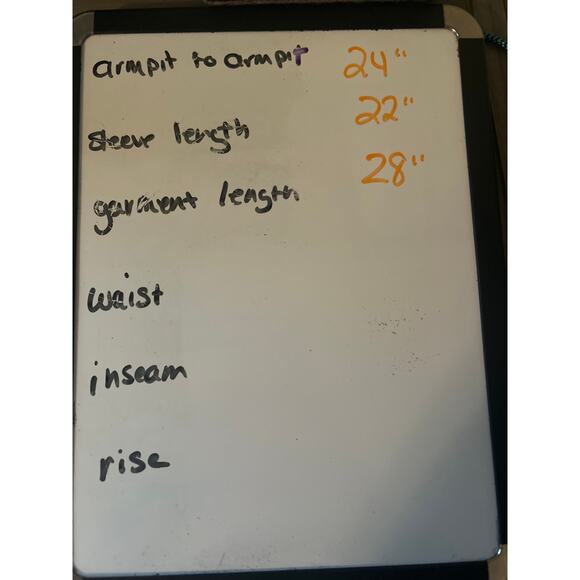 armpit to armpit 24"
sleeve length 22"
garment length 28"
waist
inseam
rise